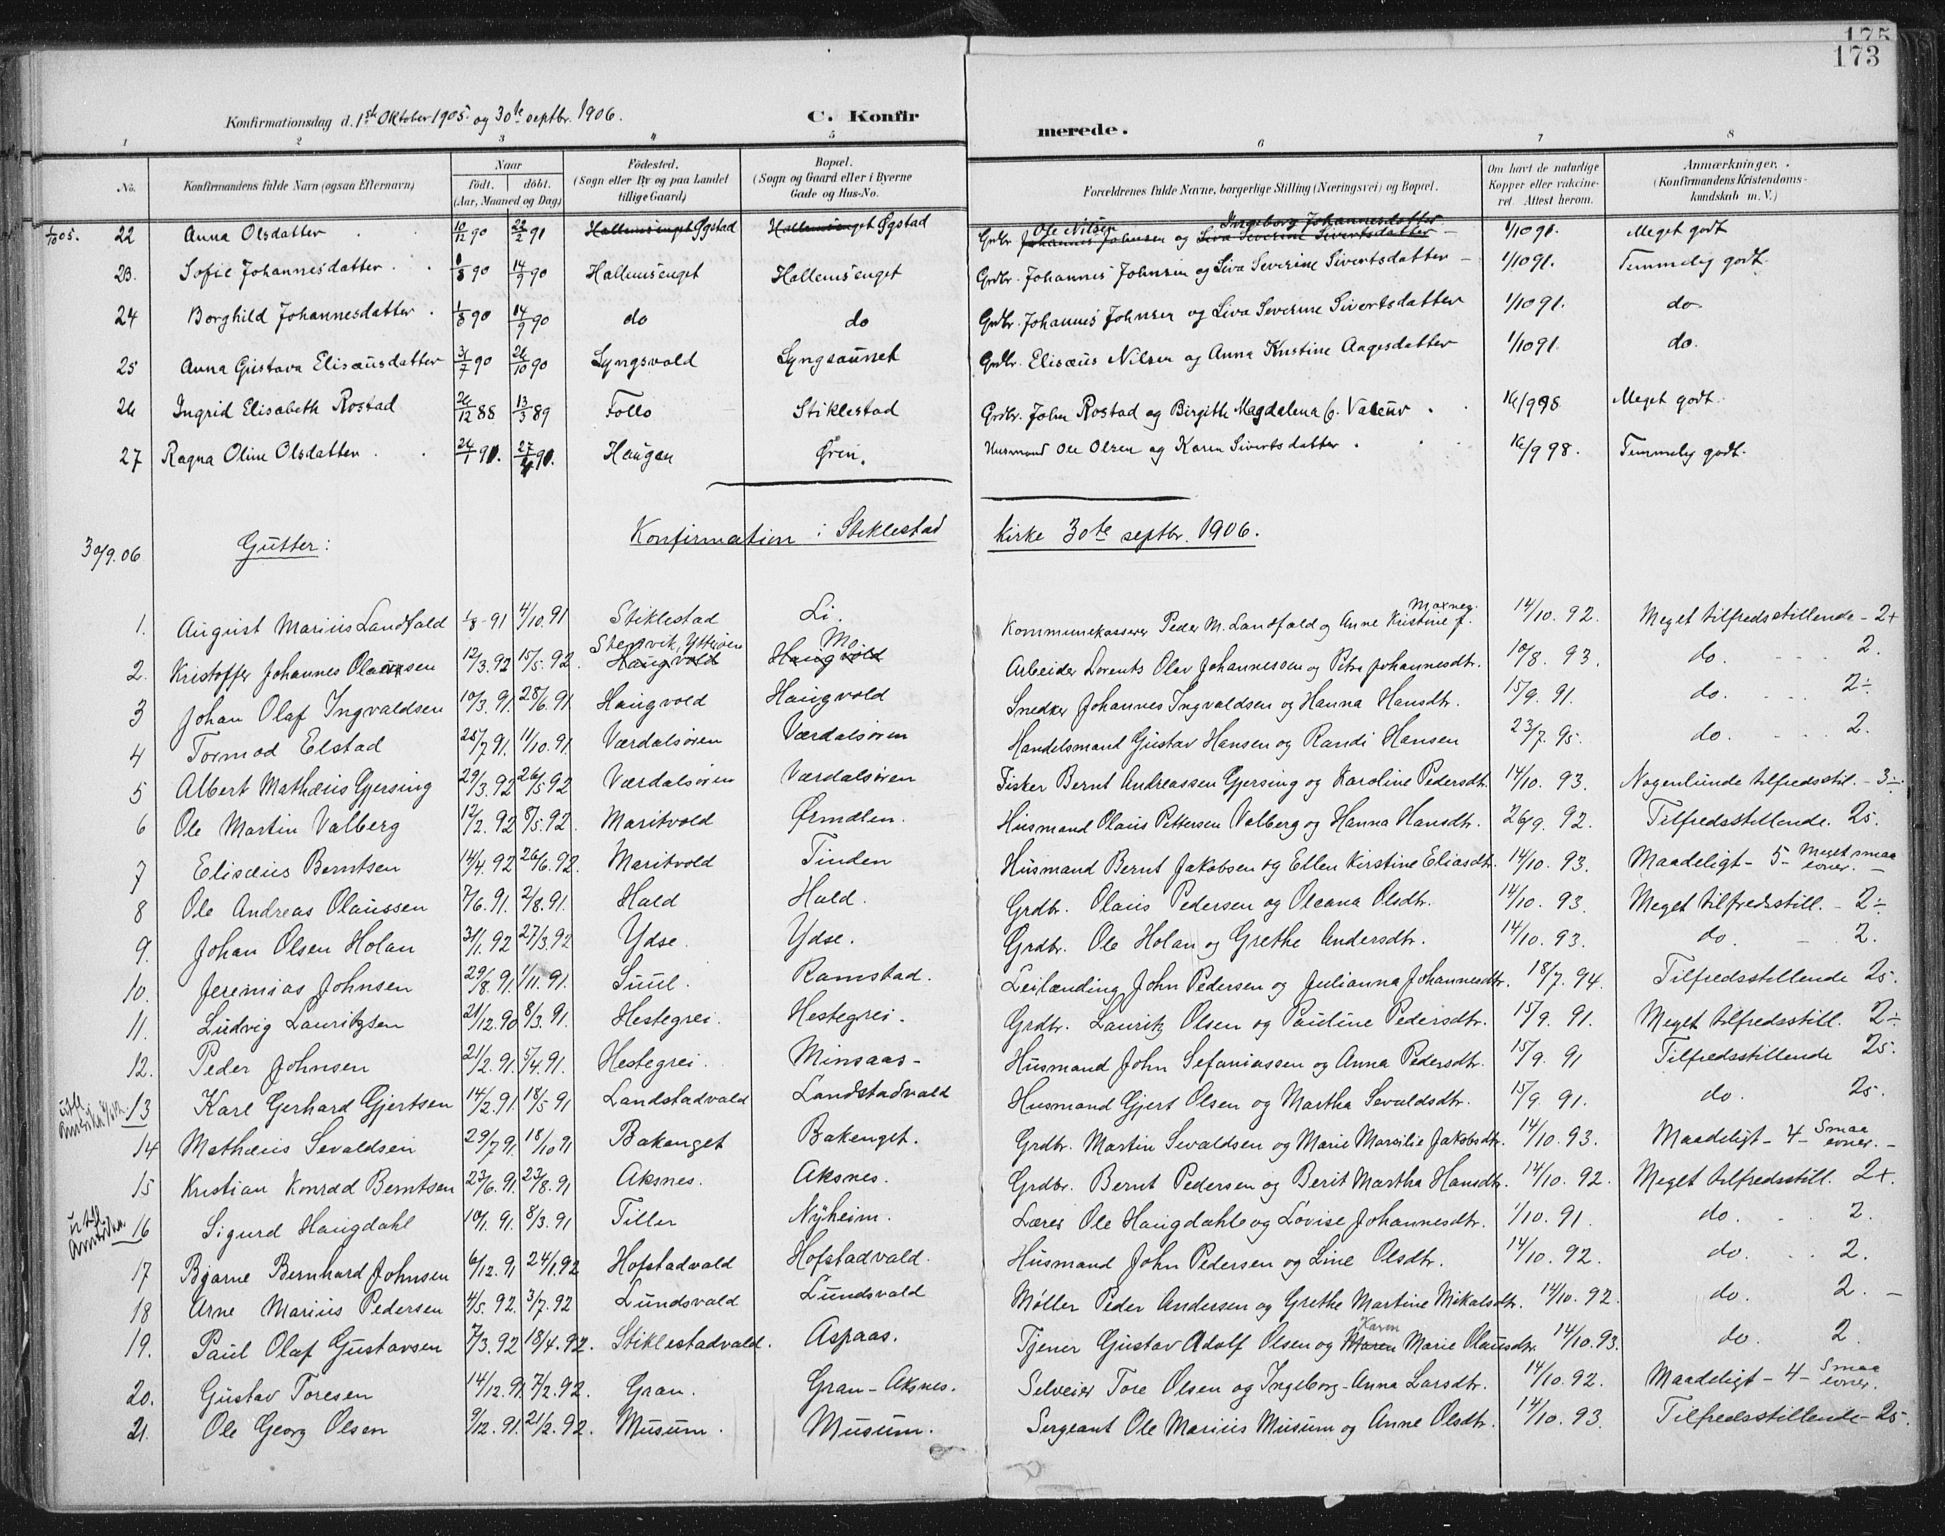 175
173
Konfirmationsdag d. 1ste Oktober 1905. og 30te septbr. 1906.
C. Konfir
merede.
1 2 3 4 5 6 7 8
No. Konfirmandens fulde Navn (ogsaa Efternavn) Naar født. døbt. (Aar, Maaned og Dag) Fødested. (Sogn eller By og paa Landet tillige Gaard) Bopæl. (Sogn og Gaard eller i Byerne Gade og Hus-No. Forældrenes fulde Navne, borgerlige Stilling (Næringsvei) og Bopæl. Om havt de naturlige Kopper eller vakcineret. Attest herom. Anmærkninger. (Konfirmandens Kristendomskundskab m. V.)
1/10 05. 22 Anna Olsdatter 10/12 90 22/2 91 Hallemsenget Øgstad Hallemsenget Øgstad Grdbr. Johannes Johnsen Ole Nilsen og Liva Severine Sivertsdatter Ingeborg Johannesdatter 1/10 91. Meget godt
23. Sofie Johannesdatter 1/8 90 14/9 90 Hallemsenget Hallemsenget Grdbr. Johannes Johnsen og Liva Severine Sivertsdatter 1/10 91. Temmelig godt.
24 Borghild Johannesdatter 1/8 90 14/9 90 do do Grdbr. Johannes Johnsen og Liva Severine Sivertsdatter 1/10 91. do
25 Anna Gustava Elisæusdatter 31/7 90 26/10 90 Lyngsvold Lyngsaunet Grdbr. Elisæus Nilsen og Anna Kristine Aagesdatter 1/10 91. do.
26 Ingrid Elisabeth Rostad 26/12 88 13/3 89 Follo Stiklestad Grdbr. John Rostad og Birgith Magdalena C. Valeur 16/9 98 Meget godt.
27 Ragna Oline Olsdatter 24/1 91. 27/4 91. Haugan Ørin. Husmand Ole Olsen og Karen Sivertsdatter 16/9 98. Temmelig godt.
30/9.06 Gutter: Konfirmation i Stiklestad Kirke 30te septbr. 1906.
1. August Marius Landfald 1/8-91 4/10.91 Stiklestad Li. Kommunekasserer Peder M. Landfald og Anne Kristine f. 14/10.92. Meget tilfredsstillende - 2+
2. Kristoffer Johannes Olaussen 12/3.92 15/5.92. Haugvold Stensvik, Ytterøen Haugvold Mo Arbeider Lorents Olav Johannessen og Petra Johannesdtr. 10/8. 93. do. 2.
3 Johan Olaf Ingvaldsen 10/3.91. 28/6.91 Haugvold Haugvold Snedker Johannes Ingvaldsen og Hanna Hansdtr. 15/9. 91. do. 2÷
4 Tormod Elstad 25/7.91. 11/10.91 Værdalsøren Værdalsøren Handelsmand Gustav Hansen og Randi Hansen 23/7. 95. do. 2.
5 Albert Mathæus Gjersing 29/3.92 26/5.92 Værdalsøren Værdalsøren Fisker Bernt Andreassen Gjersing og Karoline Pedersdtr. 14/10. 93. Nogenlunde tilfredsstil. - 3÷
6 Ole Martin Valberg 12/2.92 8/5.92. Maritvold Ørmelen. Husmand Olaus Pettersen Valberg og Hanna Hansdtr. 26/9. 92. Tilfredsstillende. 25.
7 Elisæus Berntsen 14/4.92 26/6.92. Maritvold Tinden Husmand Bernt Jakobsen og Ellen Kirstine Eliasdtr. 14/10. 93. Maadeligt - 5 - Meget smaa evner. -
8 Ole Andreas Olaussen 7/6.91. 2/8.91. Hald Hald. Grdbr. Olaus Pedersen og Oleana Olsdtr. 14/10. 93. Meget tilfredsstill. - 2÷
9. Johan Olsen Holan 31/1.92 27/3.92 Ydse. Ydse. Grdbr. Ole Holan og Grethe Andersdtr. 14/10. 93. do. 2.
10. Jeremias Johnsen 29/8.91 1/11.91. Suul. Ramstad. Leilænding John Pedersen og Julianna Johannesdtr. 18/7. 94. Tilfredsstillende 25.
11. Ludvig Lauritzsen 21/12.90 8/3.91. Hestegrei. Hestegrei. Grdbr. Lauritz Olsen og Pauline Pedersdtr. 15/9. 91. Meget tilfredsstill. 2÷
12. Peder Johnsen 21/2.91. 5/4.91. Hestegrei. Minsaas - Husmand John Sefaniassen og Anna Pedersdtr. 15/9. 91 Tilfredsstillende 25.
13 Karl Gerhard Gjertsen 14/2.91. 18/5 91 Landstadvald Landstadvald Husmand Gjert Olsen og Martha Sevaldsdtr. 15/9. 91. do. 25.
14 Mathæus Sevaldsen 29/7.91. 18/10 91 Bakenget Bakenget. Grdbr. Martin Sevaldsen og Marie Marsilie Jakobsdtr. 14/10. 93. Maadeligt - 4 - Smaa evner. -
15 Kristian Konrad Berntsen 23/6.91. 23/8.91 Aksnes. Aksnes. Grdbr. Bernt Pedersen og Berit Martha Hansdtr. 14/10. 92. Meget tilfredsstill. 2+.
utfl. Amerika 16 Sigurd Haugdahl 10/1.91. 8/3.91 Tiller Nyheim. Lærer Ole Haugdahl og Lovise Johannesdtr. 1/10. 91. do. 2.
17 Bjarne Bernhard Johnsen 6/12.91 24/1.92 Hofstadvald Hofstadvald. Husmand John Pedersen og Line Olsdtr. 14/10. 92. do. 2.
18 Arne Marius Pedersen 4/5.92. 3/7.92 Lundsvald Lundsvald Møller Peder Andersen og Grethe Martine Mikalsdtr. 14/10. 92. do. 2. -
19. Paul Olaf Gustavsen 7/3.92 18/4.92. Stiklestadvald. Aspaas. Tjener Gustav Adolf Olsen og Maren Karen Marie Olausdtr. 14/10.93. do. 2.
20. Gustav Toresen 14/12.91. 7/2.92. Gran. Gran - Aksnes. Selveier Tore Olsen og Ingeborg-Anna Larsdtr. 14/10.92. Maadeligt - 4 - Smaa evner.
21. Ole Georg Olsen 9/12.91. 21/2.92. Musum. Musum. Sergeant Ole Marius Musum og Anne Olsdtr. 14/10. 93. Tilfredsstillende - 25.